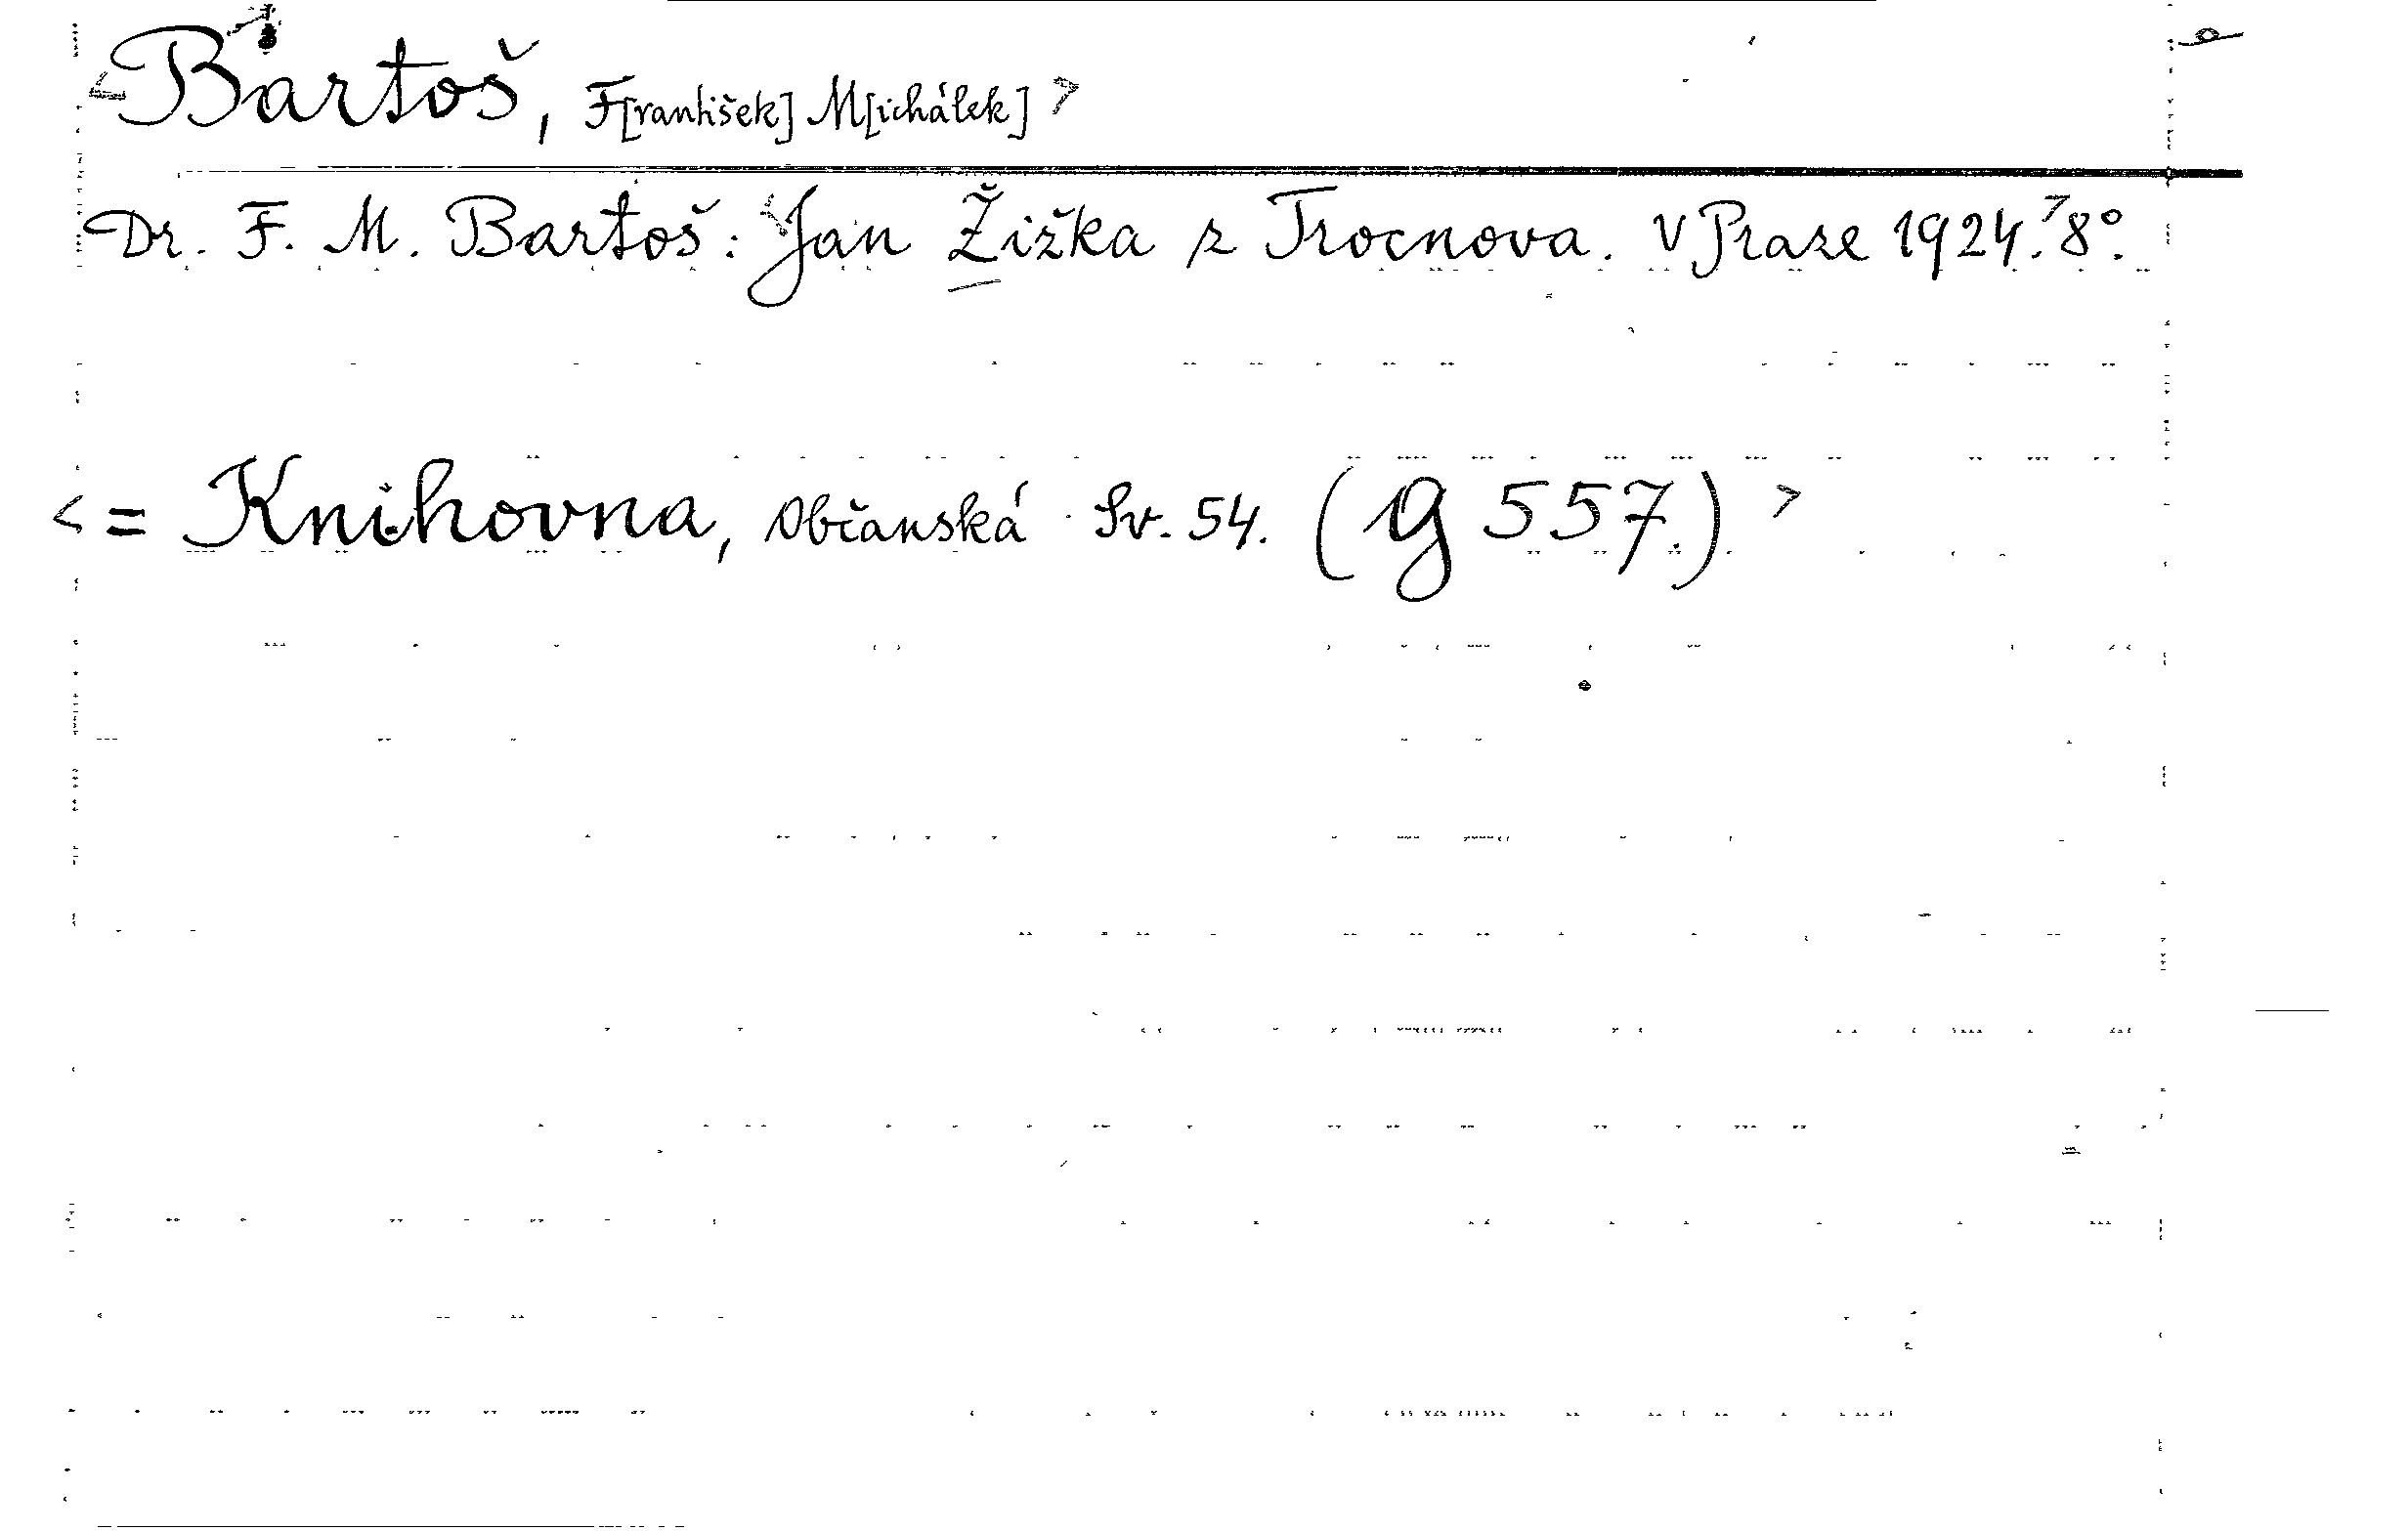 <Bartoš, F[rantišek] M[ichálek]>
Dr. F. M. Bartoš: <Jan Žižka z Trocnova. V Praze 1924.> 8°.
<= Knihovna, Občanská Sv. 54. (G 557.)>